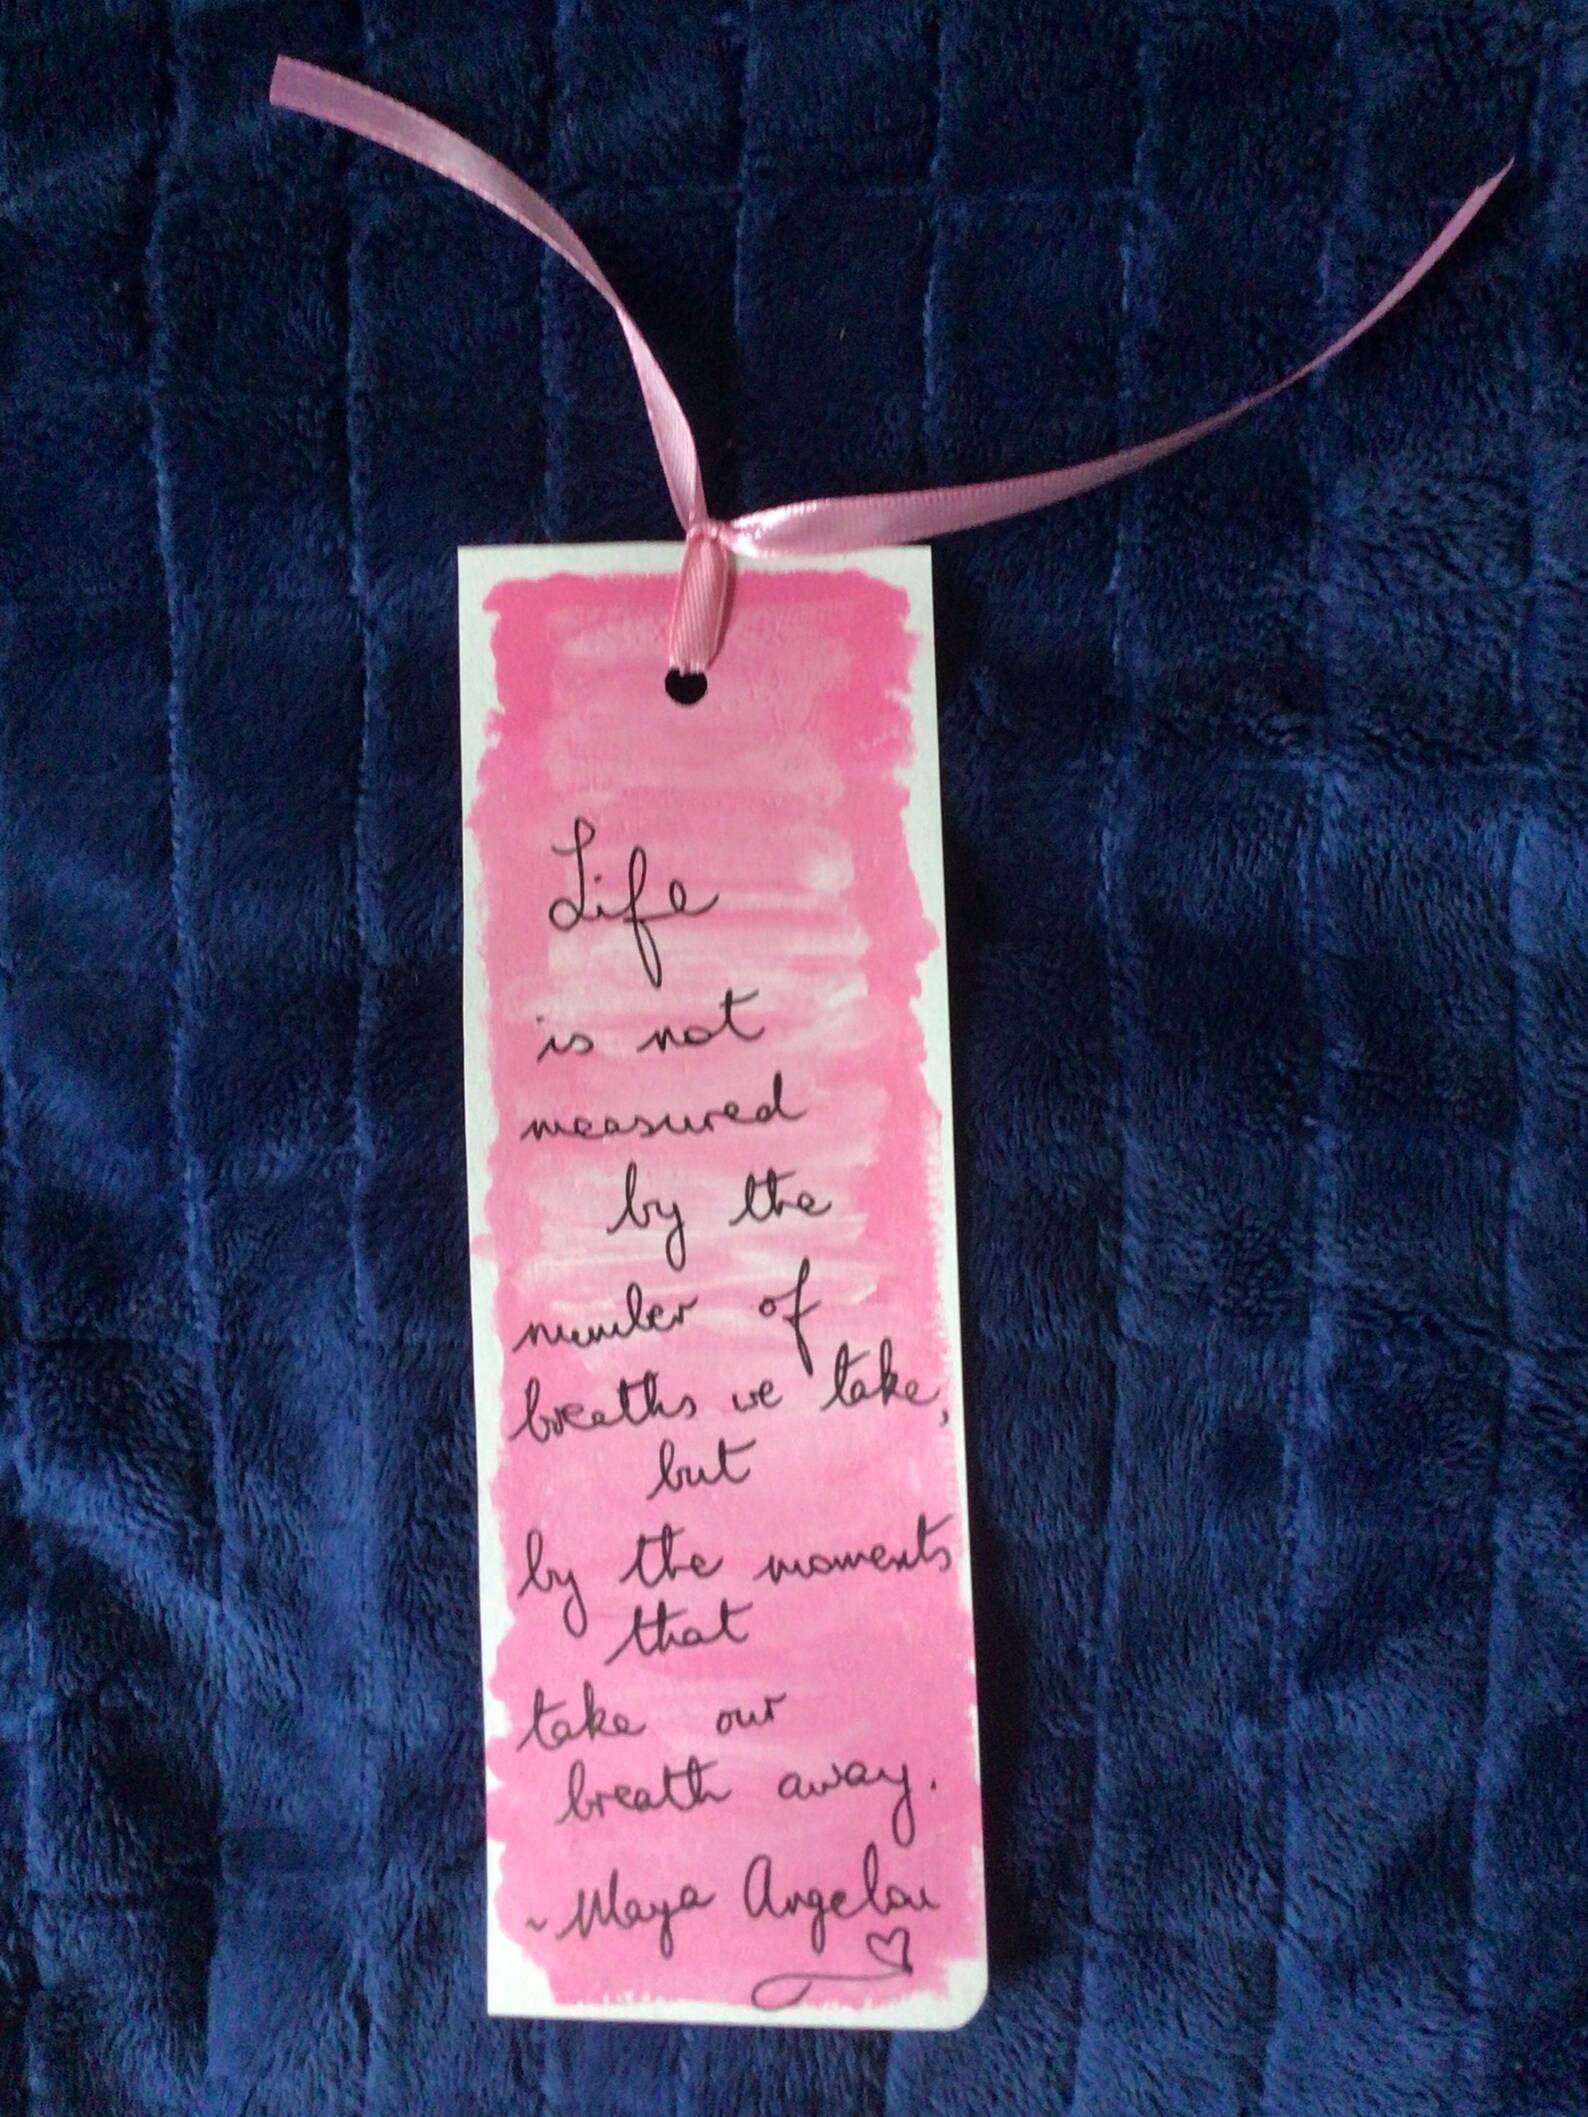 Life
is not
measured
by the
number of
breaths we take,
but
by the moments
that
take our
breath away.
~ Maya Angelou